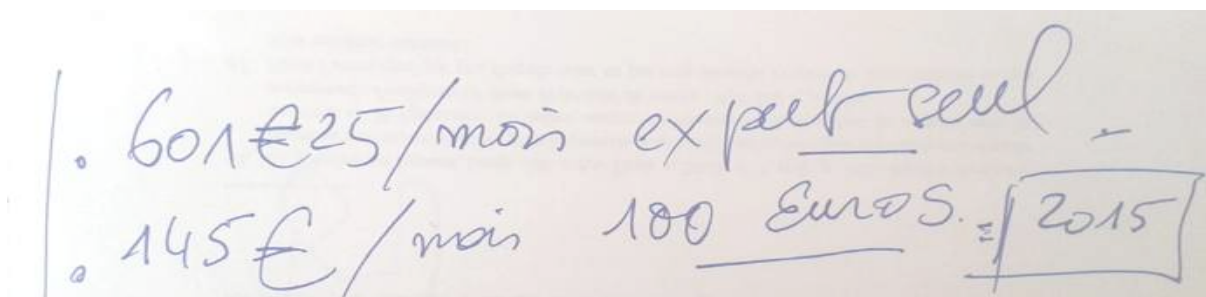 . 601€25/mois expert seul -
. 145€/mois 100 Euros. = 2015